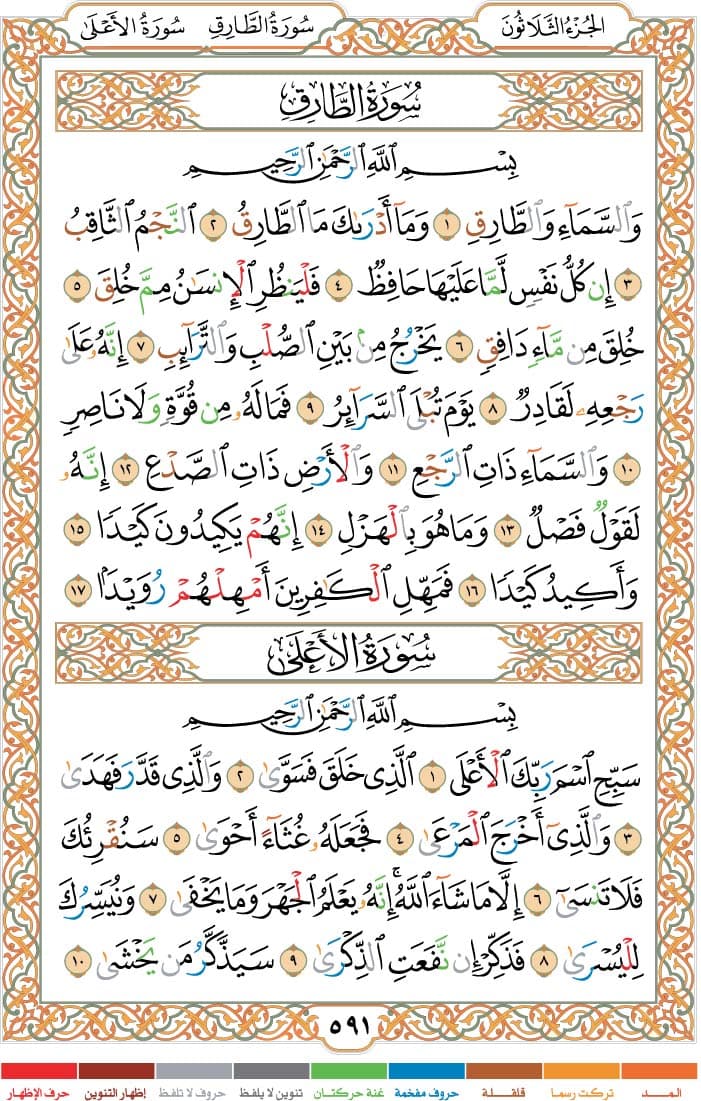 الجُزْءُ الثَّلَاثُونَ سُورَةُ الطَّارِقِ سُورَةُ الأَعْلَى
سُورَةُ الطَّارِقِ
بِسْمِ ٱللَّهِ ٱلرَّحْمَٰنِ ٱلرَّحِيمِ
وَٱلسَّمَآءِ وَٱلطَّارِقِ ١ وَمَآ أَدْرَىٰكَ مَا ٱلطَّارِقُ ٢ ٱلنَّجْمُ ٱلثَّاقِبُ
٣ إِن كُلُّ نَفْسٍ لَّمَّا عَلَيْهَا حَافِظٌ ٤ فَلْيَنظُرِ ٱلْإِنسَٰنُ مِمَّ خُلِقَ ٥
خُلِقَ مِن مَّآءٍ دَافِقٍ ٦ يَخْرُجُ مِنۢ بَيْنِ ٱلصُّلْبِ وَٱلتَّرَآئِبِ ٧ إِنَّهُۥ عَلَىٰ
رَجْعِهِۦ لَقَادِرٌ ٨ يَوْمَ تُبْلَى ٱلسَّرَآئِرُ ٩ فَمَا لَهُۥ مِن قُوَّةٍ وَلَا نَاصِرٍ
١٠ وَٱلسَّمَآءِ ذَاتِ ٱلرَّجْعِ ١١ وَٱلْأَرْضِ ذَاتِ ٱلصَّدْعِ ١٢ إِنَّهُۥ
لَقَوْلٌ فَصْلٌ ١٣ وَمَا هُوَ بِٱلْهَزْلِ ١٤ إِنَّهُمْ يَكِيدُونَ كَيْدًا ١٥
وَأَكِيدُ كَيْدًا ١٦ فَمَهِّلِ ٱلْكَٰفِرِينَ أَمْهِلْهُمْ رُوَيْدًۢا ١٧
سُورَةُ الأَعْلَىٰ
بِسْمِ ٱللَّهِ ٱلرَّحْمَٰنِ ٱلرَّحِيمِ
سَبِّحِ ٱسْمَ رَبِّكَ ٱلْأَعْلَى ١ ٱلَّذِى خَلَقَ فَسَوَّىٰ ٢ وَٱلَّذِى قَدَّرَ فَهَدَىٰ
٣ وَٱلَّذِىٓ أَخْرَجَ ٱلْمَرْعَىٰ ٤ فَجَعَلَهُۥ غُثَآءً أَحْوَىٰ ٥ سَنُقْرِئُكَ
فَلَا تَنسَىٰٓ ٦ إِلَّا مَا شَآءَ ٱللَّهُ ۚ إِنَّهُۥ يَعْلَمُ ٱلْجَهْرَ وَمَا يَخْفَىٰ ٧ وَنُيَسِّرُكَ
لِلْيُسْرَىٰ ٨ فَذَكِّرْ إِن نَّفَعَتِ ٱلذِّكْرَىٰ ٩ سَيَذَّكَّرُ مَن يَخْشَىٰ ١٠
٥٩١
المـــد تركت رسما قلقـلة حروف مفخمة غنة حركتان تنوين لا يلفظ حروف لا تلفظ إظهار التنوين حرف الإظهار